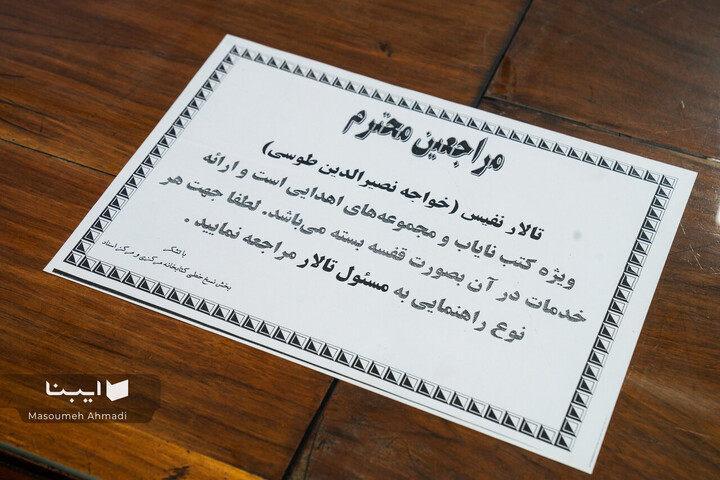 مراجعین محترم
تالار نفیس (خواجه نصیرالدین طوسی)
ویژه کتب نایاب و مجموعه‌های اهدایی است و ارائه
خدمات در آن بصورت قفسه بسته می‌باشد. لطفا جهت هر
نوع راهنمایی به مسئول تالار مراجعه نمایید .
با تشکر
بخش نسخ خطی کتابخانه مرکزی و مرکز اسناد
ایبنا
Masoumeh Ahmadi